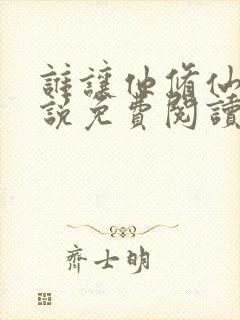 誰讓他脩仙
說免費閱讀
齊士明